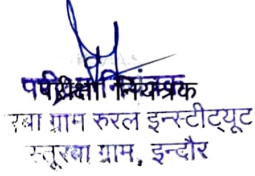 परीक्षा नियंत्रक
रबा ग्राम रुरल इन्स्टीट्यूट
स्तूरबा ग्राम, इन्दौर